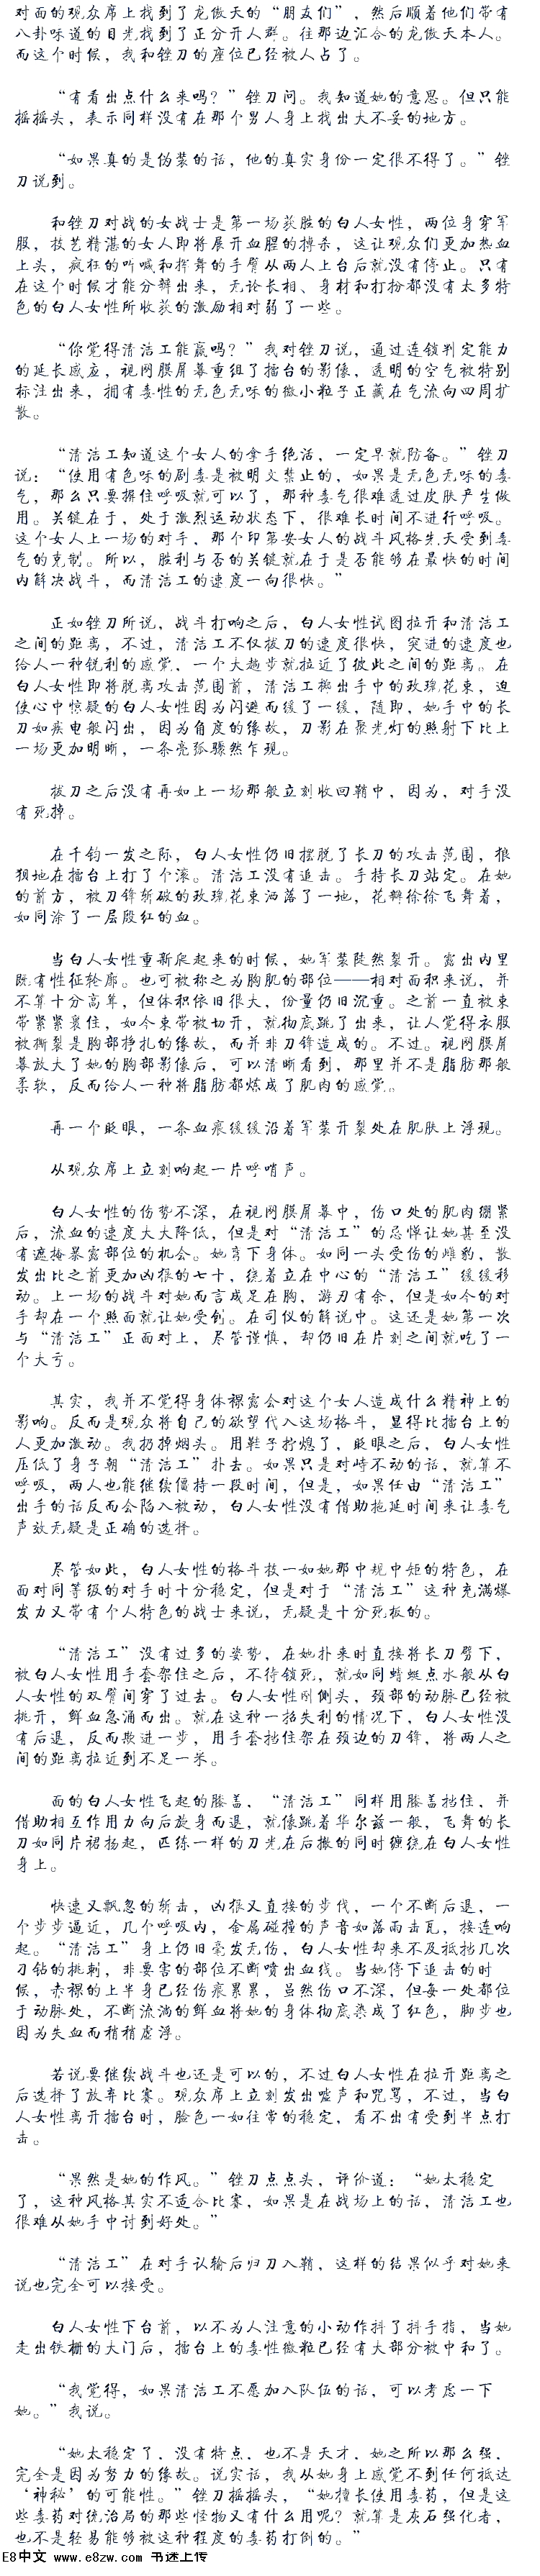 对面的观众席上找到了龙傲天的“朋友们”，然后顺着他们带有
八卦味道的目光找到了正分开人群。往那边汇合的龙傲天本人。
而这个时候，我和锉刀的座位已经被人占了。
“有看出点什么来吗？”锉刀问。我知道她的意思。但只能
摇摇头，表示同样没有在那个男人身上找出大不妥的地方。
“如果真的是伪装的话，他的真实身份一定很不得了。”锉
刀说到。
和锉刀对战的女战士是第一场获胜的白人女性，两位身穿军
服，技艺精湛的女人即将展开血腥的搏杀，这让观众们更加热血
上头，疯狂的呐喊和挥舞的手臂从两人上台后就没有停止。只有
在这个时候才能分辨出来，无论长相、身材和打扮都没有太多特
色的白人女性所收获的激励相对弱了一些。
“你觉得清洁工能赢吗？”我对锉刀说，通过连锁判定能力
的延长感应，视网膜屏幕重组了擂台的影像，透明的空气被特别
标注出来，拥有毒性的无色无味的微小粒子正藏在气流向四周扩
散。
“清洁工知道这个女人的拿手绝活，一定早就防备。”锉刀
说：“使用有色味的剧毒是被明文禁止的，如果是无色无味的毒
气，那么只要摒住呼吸就可以了，那种毒气很难透过皮肤产生做
用。关键在于，处于激烈运动状态下，很难长时间不进行呼吸。
这个女人上一场的对手，那个印第安女人的战斗风格先天受到毒
气的克制。所以，胜利与否的关键就在于是否能够在最快的时间
内解决战斗，而清洁工的速度一向很快。”
正如锉刀所说，战斗打响之后，白人女性试图拉开和清洁工
之间的距离，不过，清洁工不仅拔刀的速度很快，突进的速度也
给人一种锐利的感觉，一个大趟步就拉近了彼此之间的距离。在
白人女性即将脱离攻击范围前，清洁工掷出手中的玫瑰花束，迫
使心中惊疑的白人女性因为闪避而缓了一缓，随即，她手中的长
刀如疾电般闪出，因为角度的缘故，刀影在聚光灯的照射下比上
一场更加明晰，一条亮弧骤然乍现。
拔刀之后没有再如上一场那般立刻收回鞘中，因为，对手没
有死掉。
在千钧一发之际，白人女性仍旧摆脱了长刀的攻击范围，狼
狈地在擂台上打了个滚。清洁工没有追击。手持长刀站定。在她
的前方，被刀锋斩破的玫瑰花束洒落了一地，花瓣徐徐飞舞着，
如同涂了一层殷红的血。
当白人女性重新爬起来的时候，她军装陡然裂开。露出内里
既有性征轮廓。也可被称之为胸肌的部位——相对面积来说，并
不算十分高耸，但体积依旧很大，份量仍旧沉重。之前一直被束
带紧紧裹住，如今束带被切开，就彻底跳了出来，让人觉得衣服
被撕裂是胸部挣扎的缘故，而并非刀锋造成的。不过。视网膜屏
幕放大了她的胸部影像后，可以清晰看到，那里并不是脂肪那般
柔软，反而给人一种将脂肪都炼成了肌肉的感觉。
再一个眨眼，一条血痕缓缓沿着军装开裂处在肌肤上浮现。
从观众席上立刻响起一片呼哨声。
白人女性的伤势不深，在视网膜屏幕中，伤口处的肌肉绷紧
后，流血的速度大大降低，但是对“清洁工”的忌惮让她甚至没
有遮掩暴露部位的机会。她弯下身体。如同一头受伤的雌豹，散
发出比之前更加凶狠的七十，绕着立在中心的“清洁工”缓缓移
动。上一场的战斗对她而言成足在胸，游刃有余，但是如今的对
手却在一个照面就让她受创。在司仪的解说中。这还是她第一次
与“清洁工”正面对上，尽管谨慎，却仍旧在片刻之间就吃了一
个大亏。
其实，我并不觉得身体裸露会对这个女人造成什么精神上的
影响。反而是观众将自己的欲望代入这场格斗，显得比擂台上的
人更加激动。我扔掉烟头。用鞋子拧熄了，眨眼之后，白人女性
压低了身子朝“清洁工”扑去。如果只是对峙不动的话，就算不
呼吸，两人也能继续僵持一段时间，但是，如果任由“清洁工”
出手的话反而会陷入被动，白人女性没有借助拖延时间来让毒气
声效无疑是正确的选择。
尽管如此，白人女性的格斗技一如她那中规中矩的特色，在
面对同等级的对手时十分稳定，但是对于“清洁工”这种充满爆
发力又带有个人特色的战士来说，无疑是十分死板的。
“清洁工”没有过多的姿势，在她扑来时直接将长刀劈下，
被白人女性用手套架住之后，不待锁死，就如同蜻蜓点水般从白
人女性的双臂间穿了过去。白人女性刚侧头，颈部的动脉已经被
挑开，鲜血急涌而出。就在这种一招失利的情况下，白人女性没
有后退，反而欺进一步，用手套挡住架在颈边的刀锋，将两人之
间的距离拉近到不足一米。
面的白人女性飞起的膝盖，“清洁工”同样用膝盖挡住，并
借助相互作用力向后旋身而退，就像跳着华尔兹一般，飞舞的长
刀如同片裙扬起，匹练一样的刀光在后撤的同时缠绕在白人女性
身上。
快速又飘忽的斩击，凶狠又直接的步伐，一个不断后退，一
个步步逼近，几个呼吸内，金属碰撞的声音如落雨击瓦，接连响
起。“清洁工”身上仍旧毫发无伤，白人女性却来不及抵挡几次
刀钻的挑刺，非要害的部位不断喷出血线。当她停下追击的时
候，赤裸的上半身已经伤痕累累，虽然伤口不深，但每一处都位
于动脉处，不断流淌的鲜血将她的身体彻底染成了红色，脚步也
因为失血而稍稍虚浮。
若说要继续战斗也还是可以的，不过白人女性在拉开距离之
后选择了放弃比赛。观众席上立刻发出嘘声和咒骂，不过，当白
人女性离开擂台时，脸色一如往常的稳定，看不出有受到半点打
击。
“果然是她的作风。”锉刀点点头，评价道：“她太稳定
了，这种风格其实不适合比赛，如果是在战场上的话，清洁工也
很难从她手中讨到好处。”
“清洁工”在对手认输后归刀入鞘，这样的结果似乎对她来
说也完全可以接受。
白人女性下台前，以不为人注意的小动作抖了抖手指，当她
走出铁栅的大门后，擂台上的毒性微粒已经有大部分被中和了。
“我觉得，如果清洁工不愿加入队伍的话，可以考虑一下
她。”我说。
“她太稳定了，没有特点，也不是天才，她之所以那么强，
完全是因为努力的缘故。说实话，我从她身上感觉不到任何抵达
‘神秘’的可能性。”锉刀摇摇头，“她擅长使用毒药，但是这
些毒药对统治局的那些怪物又有什么用呢？就算是灰石强化者，
也不是轻易能够被这种程度的毒药打倒的。”
E8中文 www.e8zw.com 书迷上传